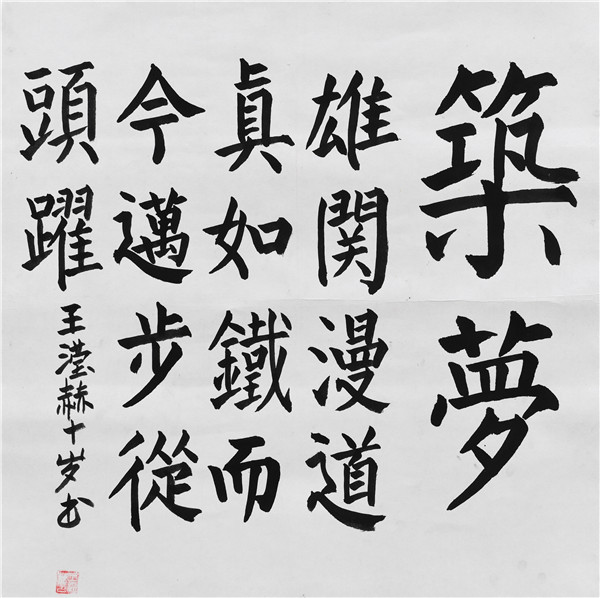 築夢
雄関漫道
真如鐵而
今邁步從
頭躍
王滢赫十岁书